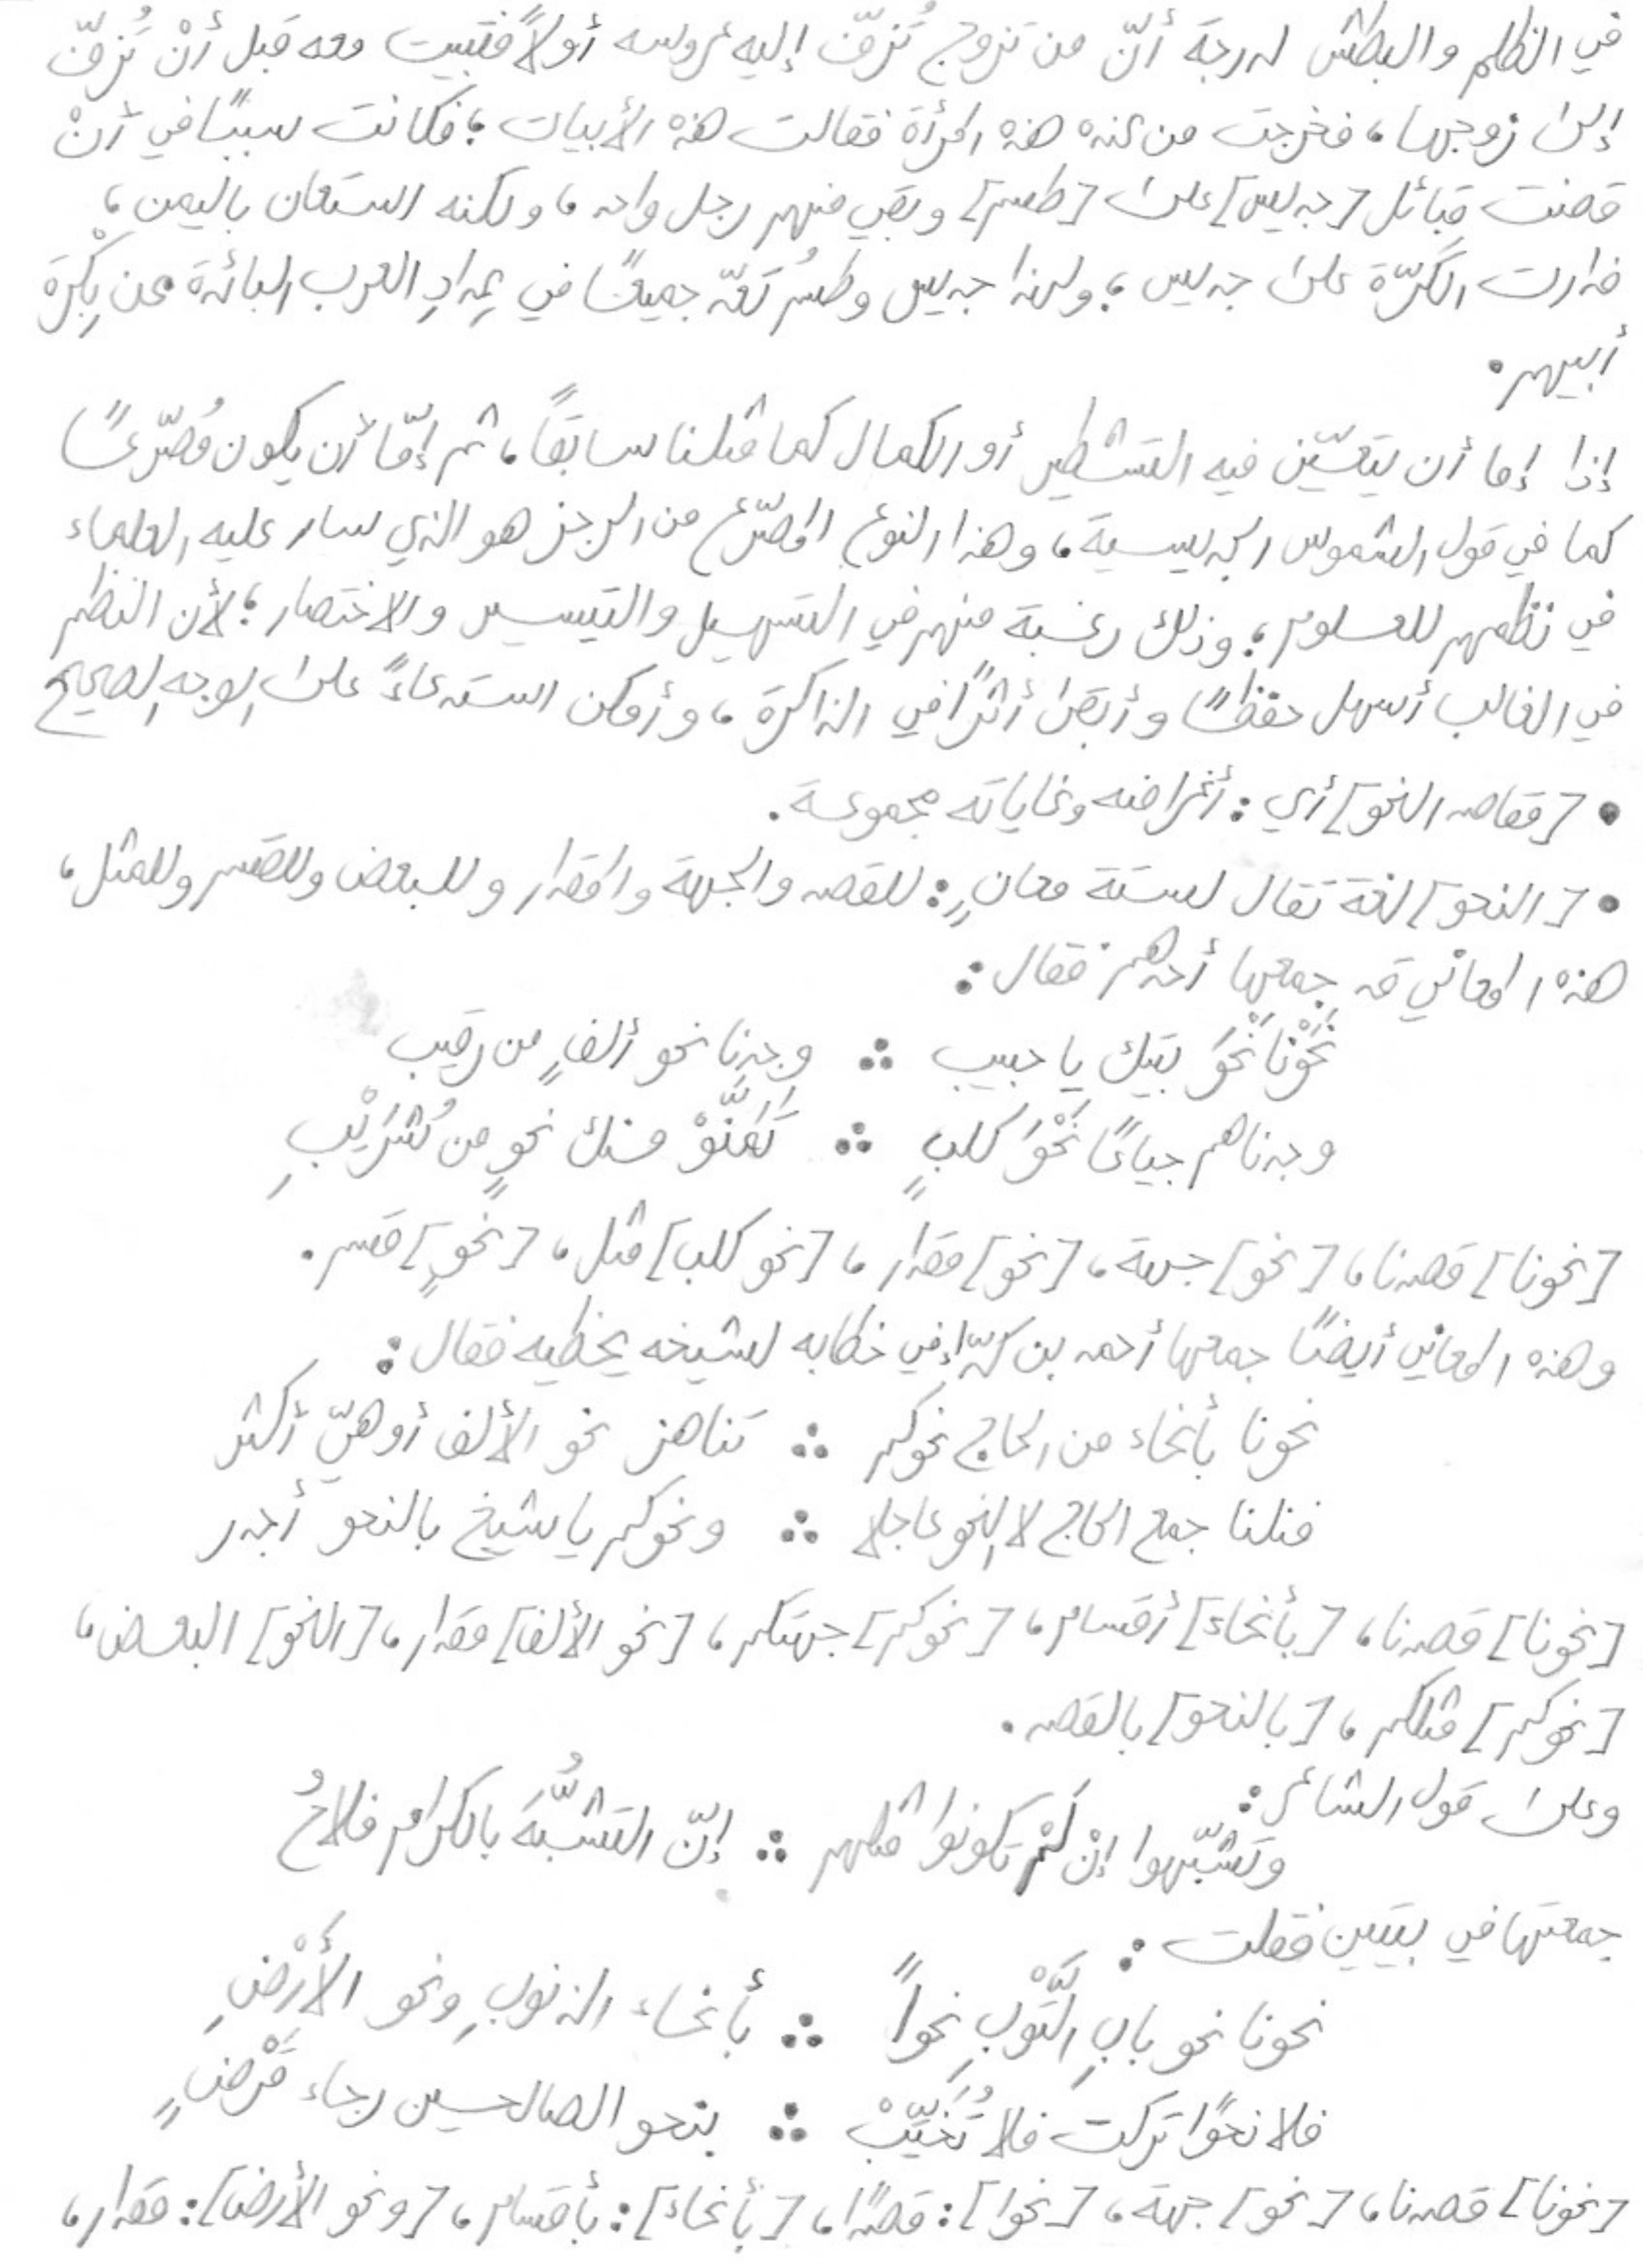 في الظلم والبطش لدرجة أنّ من تزوج تُزفّ إليه عروسه أولاً فتبيت معه قبل أنْ تُزفّ
إلى زوجها، فخرجت من عنده هذه المرأة فقالت هذه الأبيات؛ فكانت سببًا في أنْ
قضت قبائل [جديس] على [طسم] وبقي منهم رجل واحد، ولكنه استعان باليمن،
فدارت الكَرّة على جديس؛ ولهذا جديس وطسمُ تعدّ جميعًا في عِدادِ العرب البائدة عن بِكْرَة
أبيهم.
إذا إما أن يتعيّن فيه التشطير أو الكمال كما مثلنا سابقاً، ثم إمّا أن يكون مُصرّعًا
كما في قول الشموس الجديسية، وهذا النوع المصرّع من الرجز هو الذي سار عليه العلماء
في نظمهم للعلوم؛ وذلك رغبة منهم في التسهيل والتيسير والاختصار؛ لأن النظم
في الغالب أسهل حفظًا وأبقى أثرًا في الذاكرة، وأمكن استدعاءً على الوجه الصحيح
• [مقاصد النحو] أي: أغراضه وغاياته مجموعة.
• [النحو] لغة تقال لستة معانٍ: للقصد والجهة والمقدار وللبعض وللقسم وللمثل،
هذه المعاني قد جمعها أحدهم فقال:
نَحَوْنَا نَحْوَ بيتك يا حبيب ∴ وجدنا نحو ألفٍ من رقيب
وجدناهم جياعًا نَحْوَ كلبٍ ∴ تَمَنَّوْ منك نحوٍ من شُرَيْبِ
[نحونا] قصدنا، [نحو] جهة، [نحو] مقدار، [نحو كلب] مثل، [نحوٍ] قسم.
وهذه المعاني أيضًا جمعها أحمد بن في خطابه لشيخه يحظيه فقال:
نحونا بأنحاء من الحاج نحوكم ∴ تناهز نحو الألف أو هيّ أكثر
فنلنا جمع الحاج لا النحو عاجلا ∴ ونحوكم يا شيخ بالنحو أجدر
[نحونا] قصدنا، [بأنحاء] أقسام، [نحوكم] جهتكم، [نحو الألف] مقدار، [النحو] البعض،
[نحوكم] مثلكم، [بالنحو] بالقصد.
وعلى قول الشاعر:
وتشبّهوا إنْ لَمْ تكونوا مثلهم ∴ إنّ التشبُّهَ بالكرام فلاحُ
جمعتها في بيتين فقلت:
نحونا نحو بابِ التَّوْبِ نحواً ∴ بأنحاء الذنوبِ ونحو الأَرْضِ
فلا نحوًا تركت فلا تُخَيِّبْ ∴ بنحو الصالحين رجاء قَرْضٍ
[نحونا] قصدنا، [نحو] جهة، [نحوا]: قصدًا، [بأنحاء]: بأقسام، [ونحو الأرض]: مقدار،